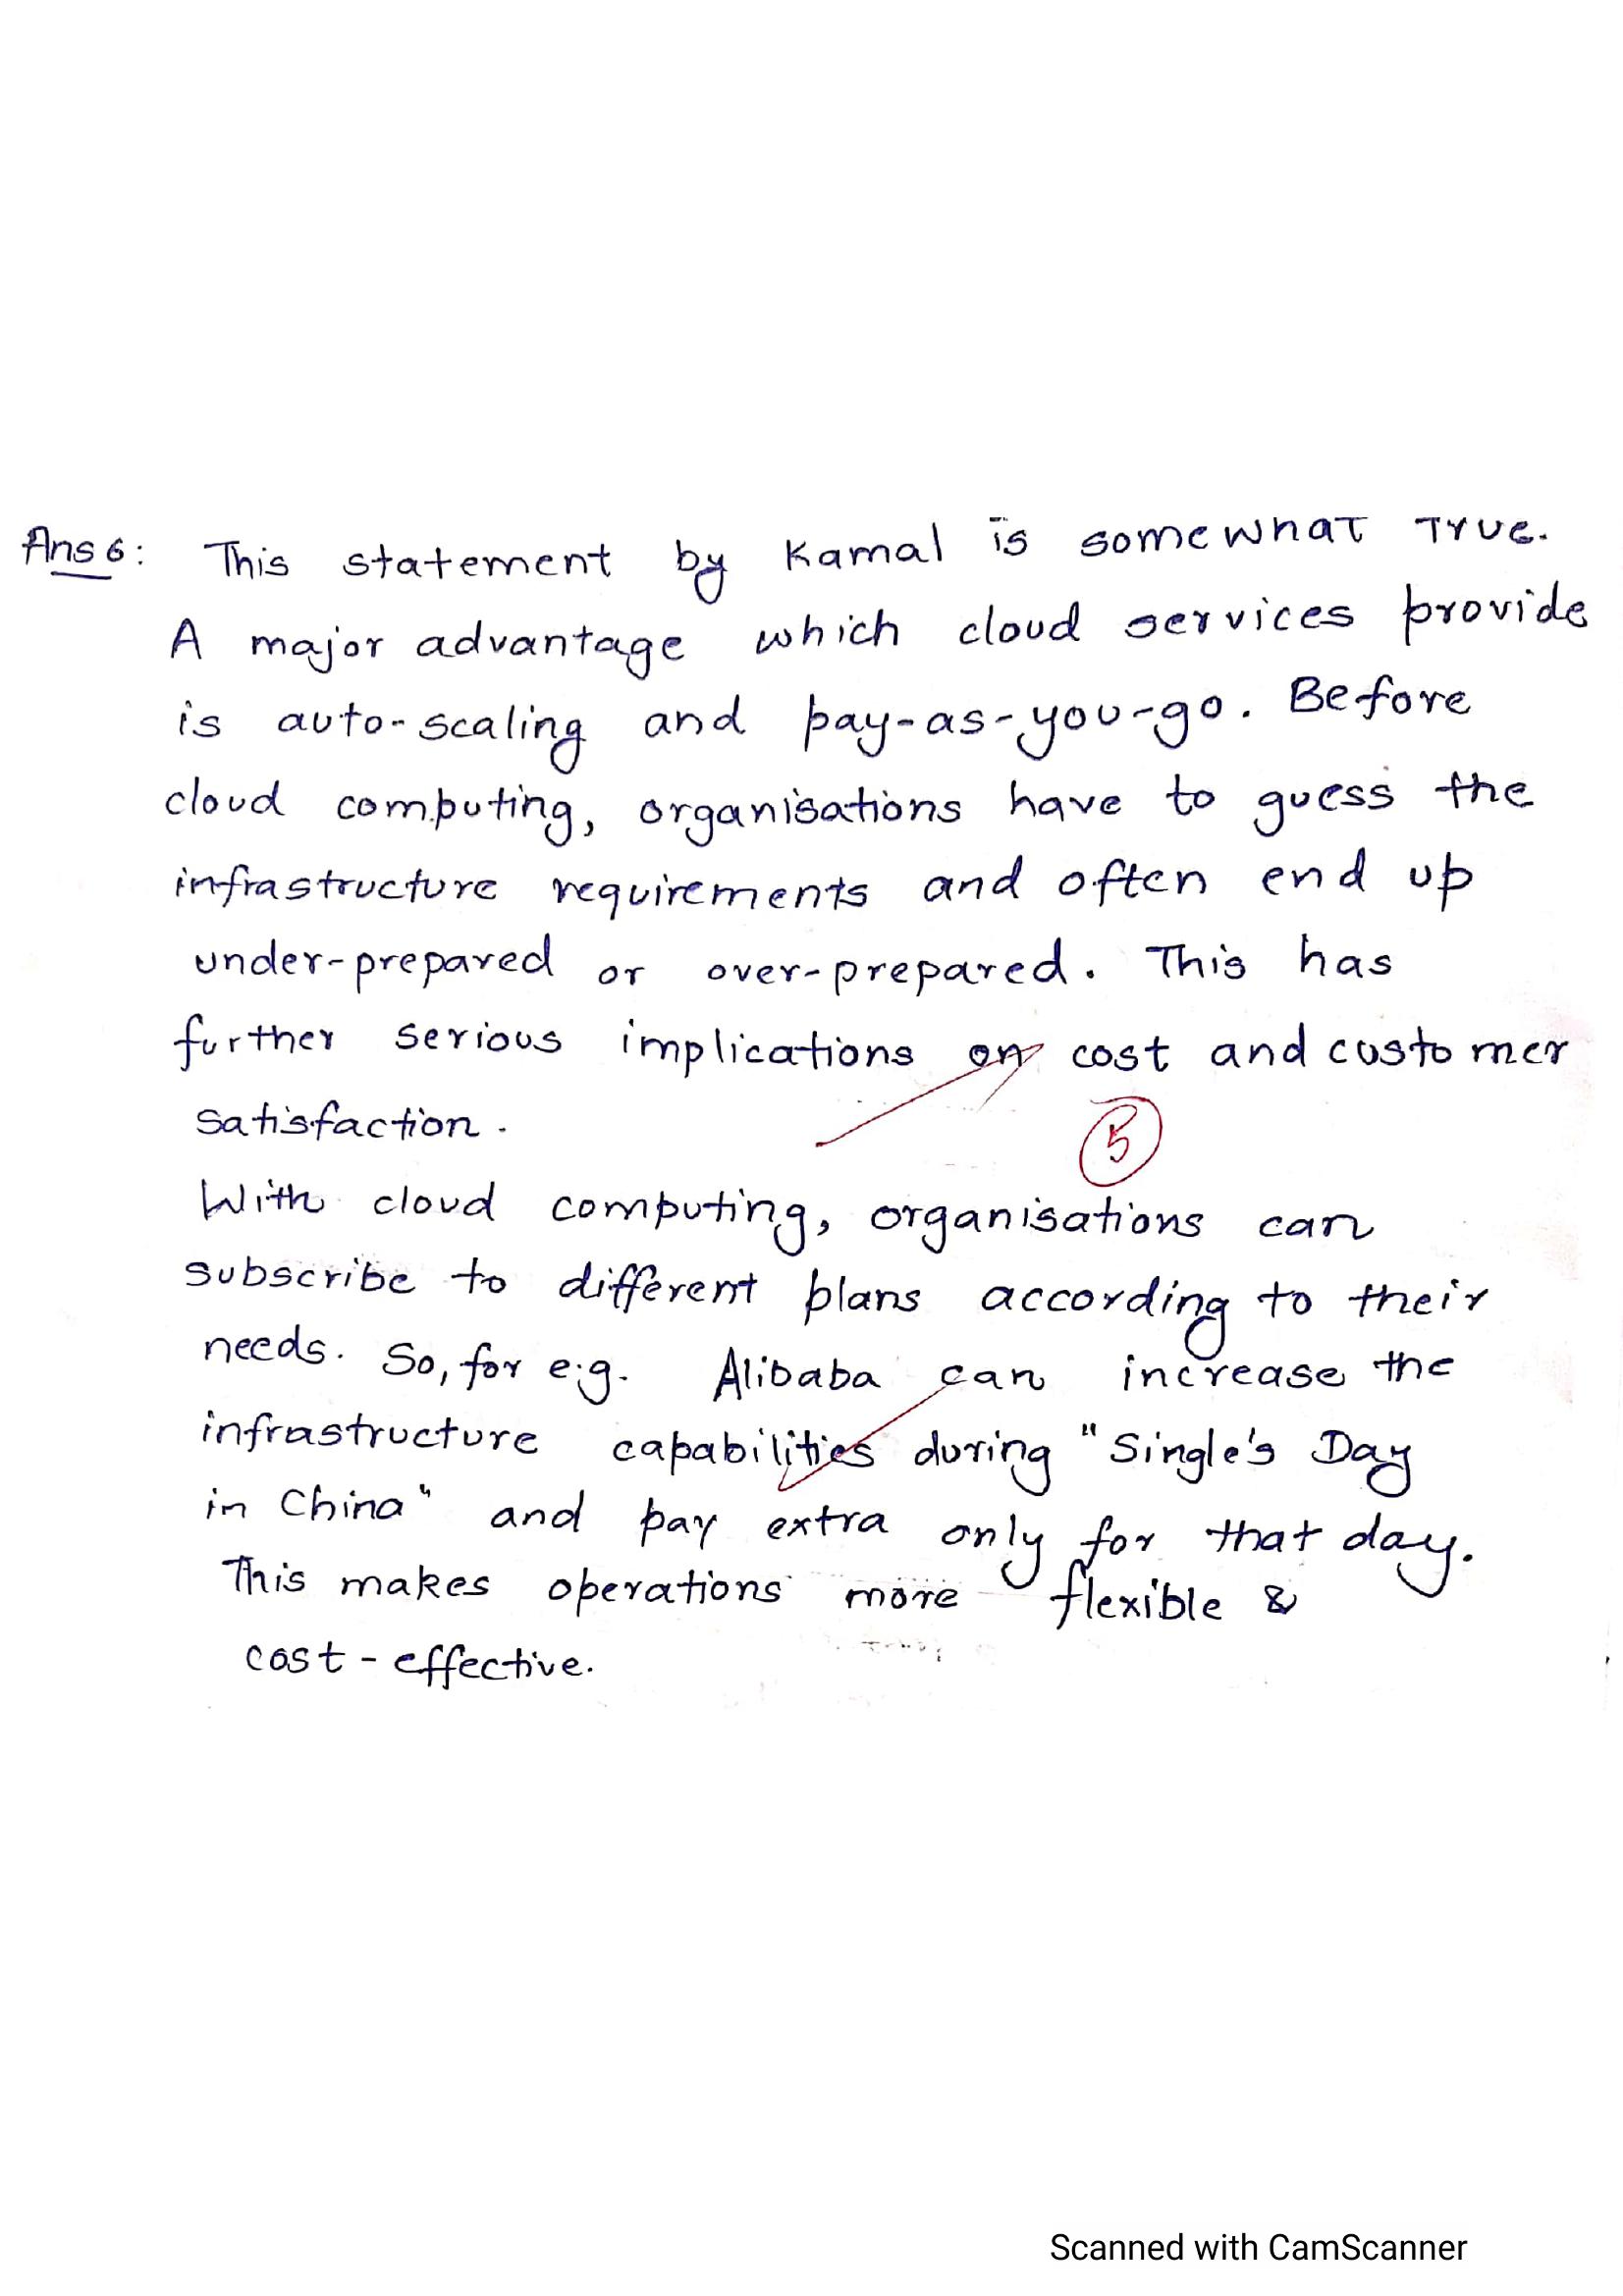 Ans 6: This statement by Kamal is somewhat True.
A major advantage which cloud services provide
is auto-scaling and pay-as-you-go. Before
cloud computing, organisations have to guess the
infrastructure requirements and often end up
under-prepared or over-prepared. This has
further serious implications on cost and customer
satisfaction.
5
With cloud computing, organisations can
subscribe to different plans according to their
needs. So, for e.g. Alibaba can increase the
infrastructure capabilities during "Single's Day
in China" and pay extra only for that day.
This makes operations more flexible &
cost-effective.
Scanned with CamScanner